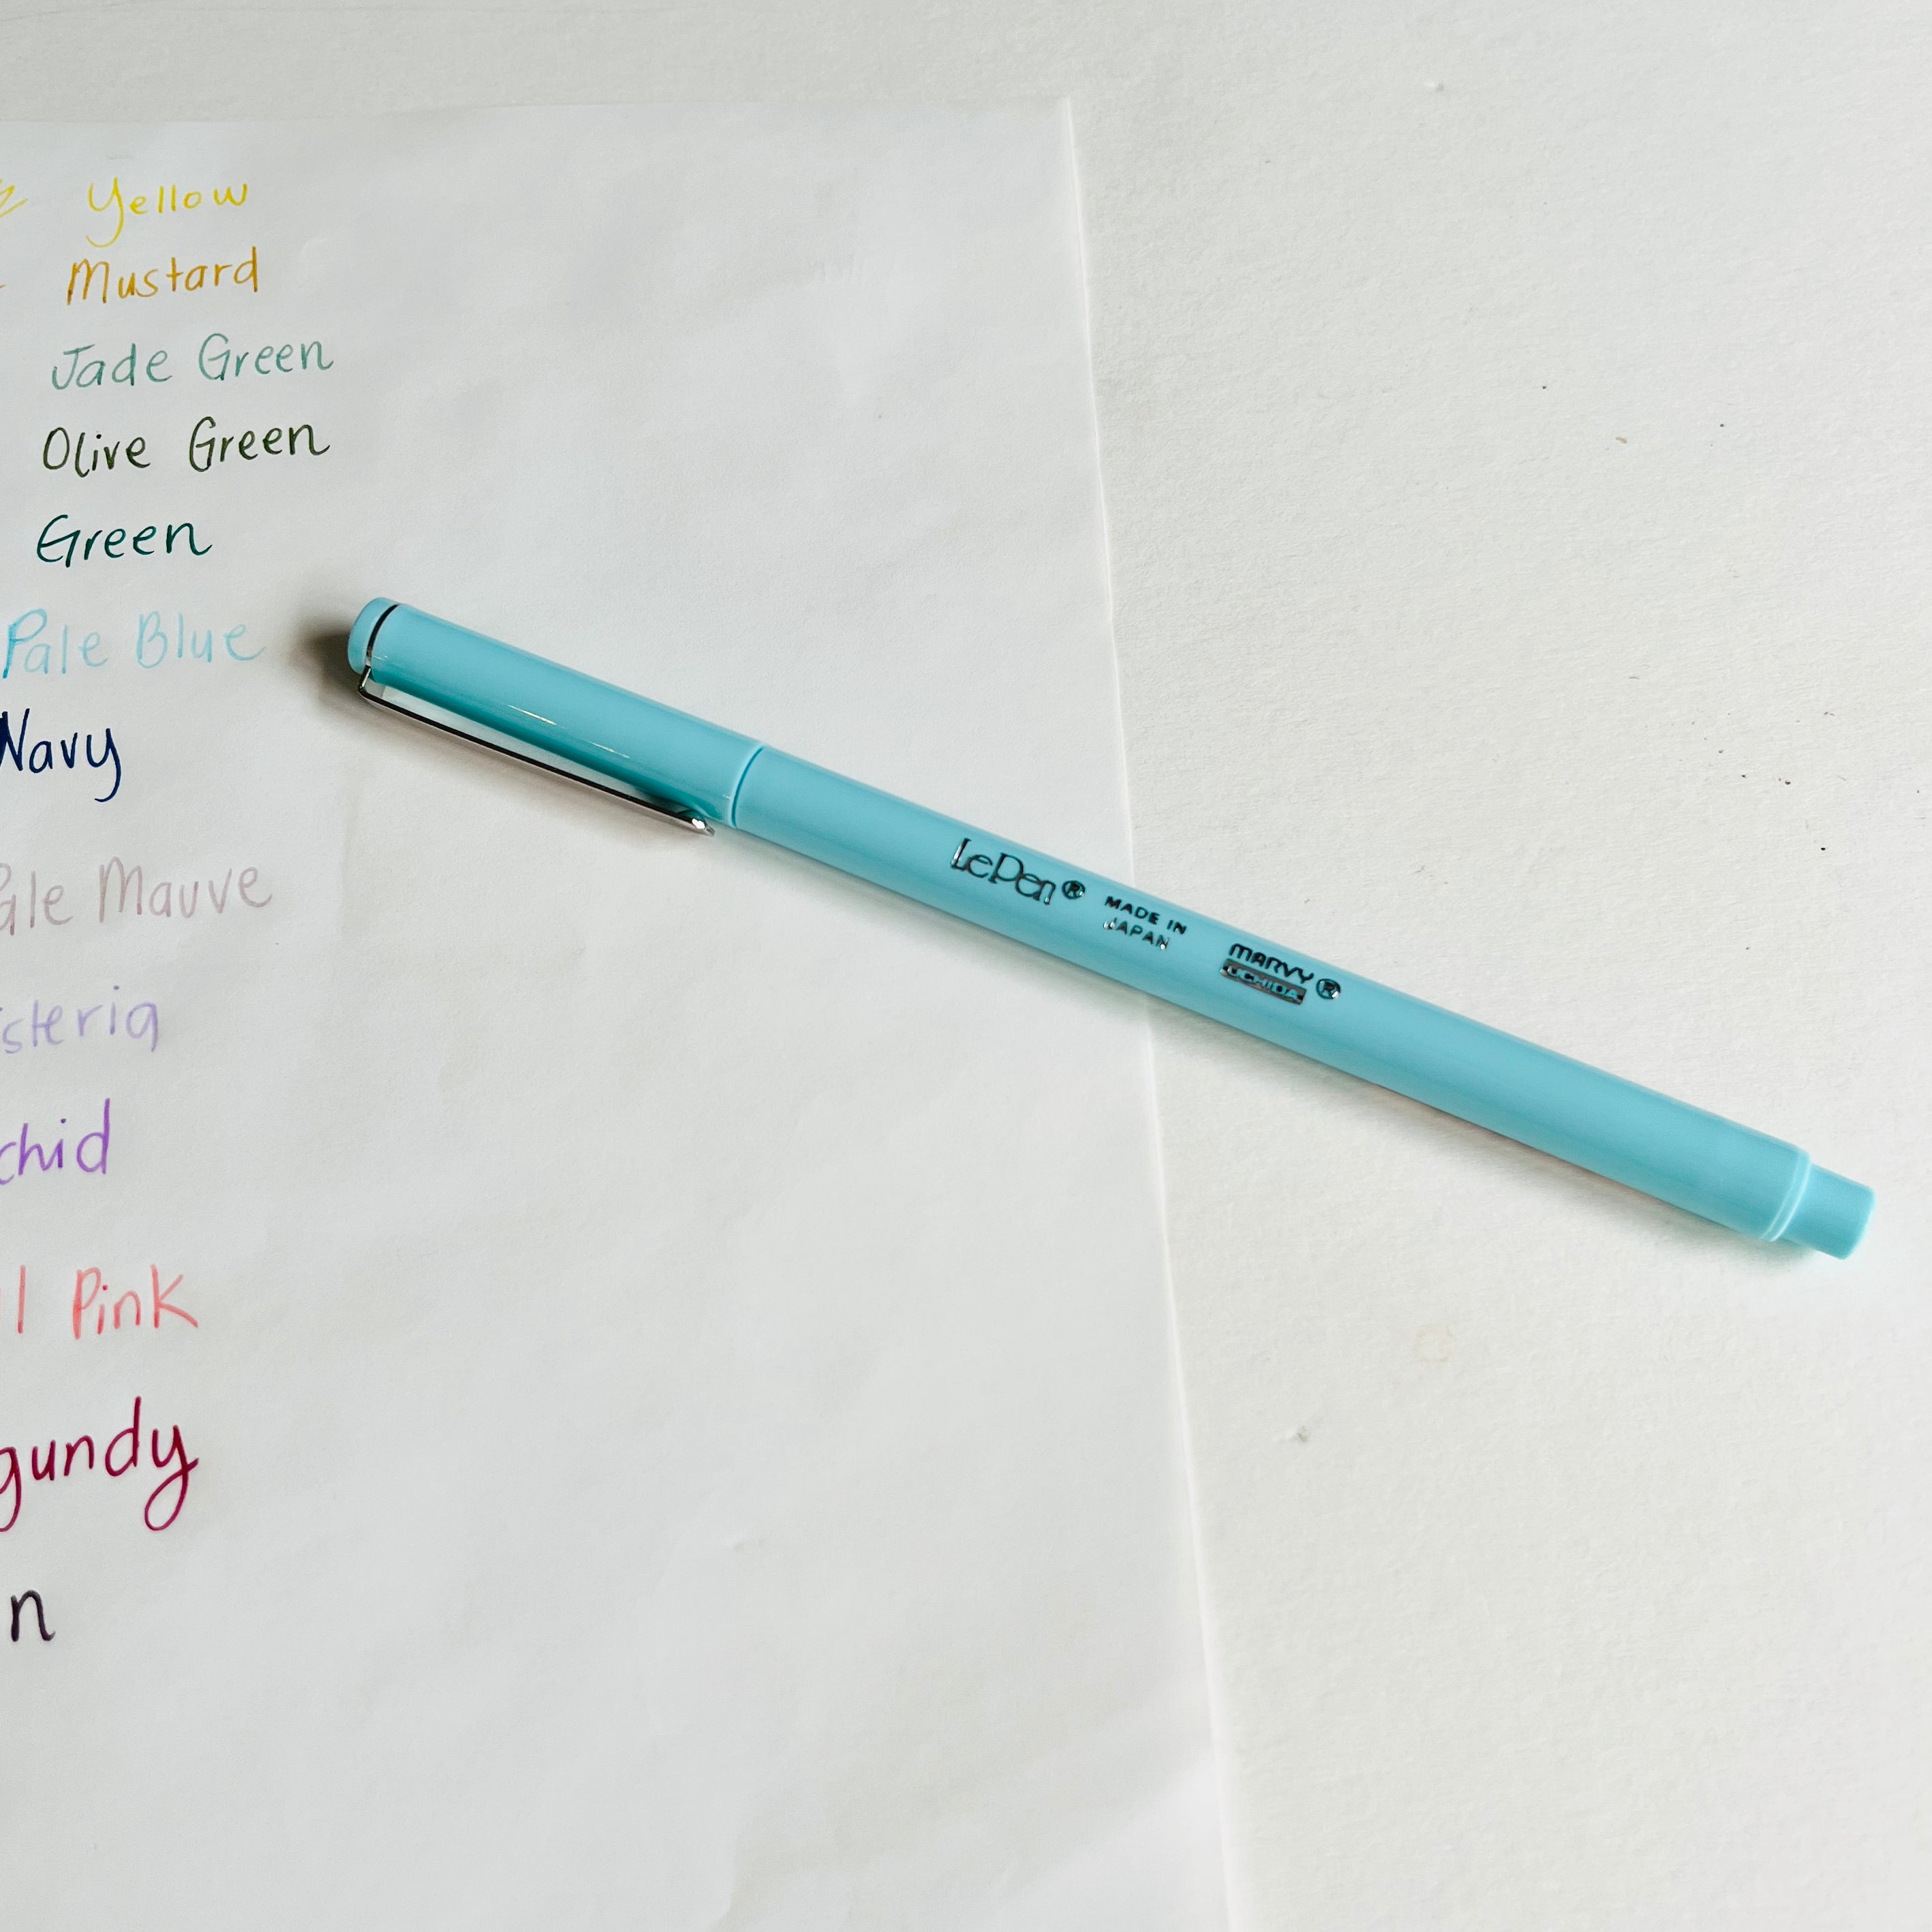 Yellow
Mustard
Jade Green
Olive Green
Green
Pale Blue
Navy
Mauve
Pink
LePen® MADE IN JAPAN MARVY® UCHIDA